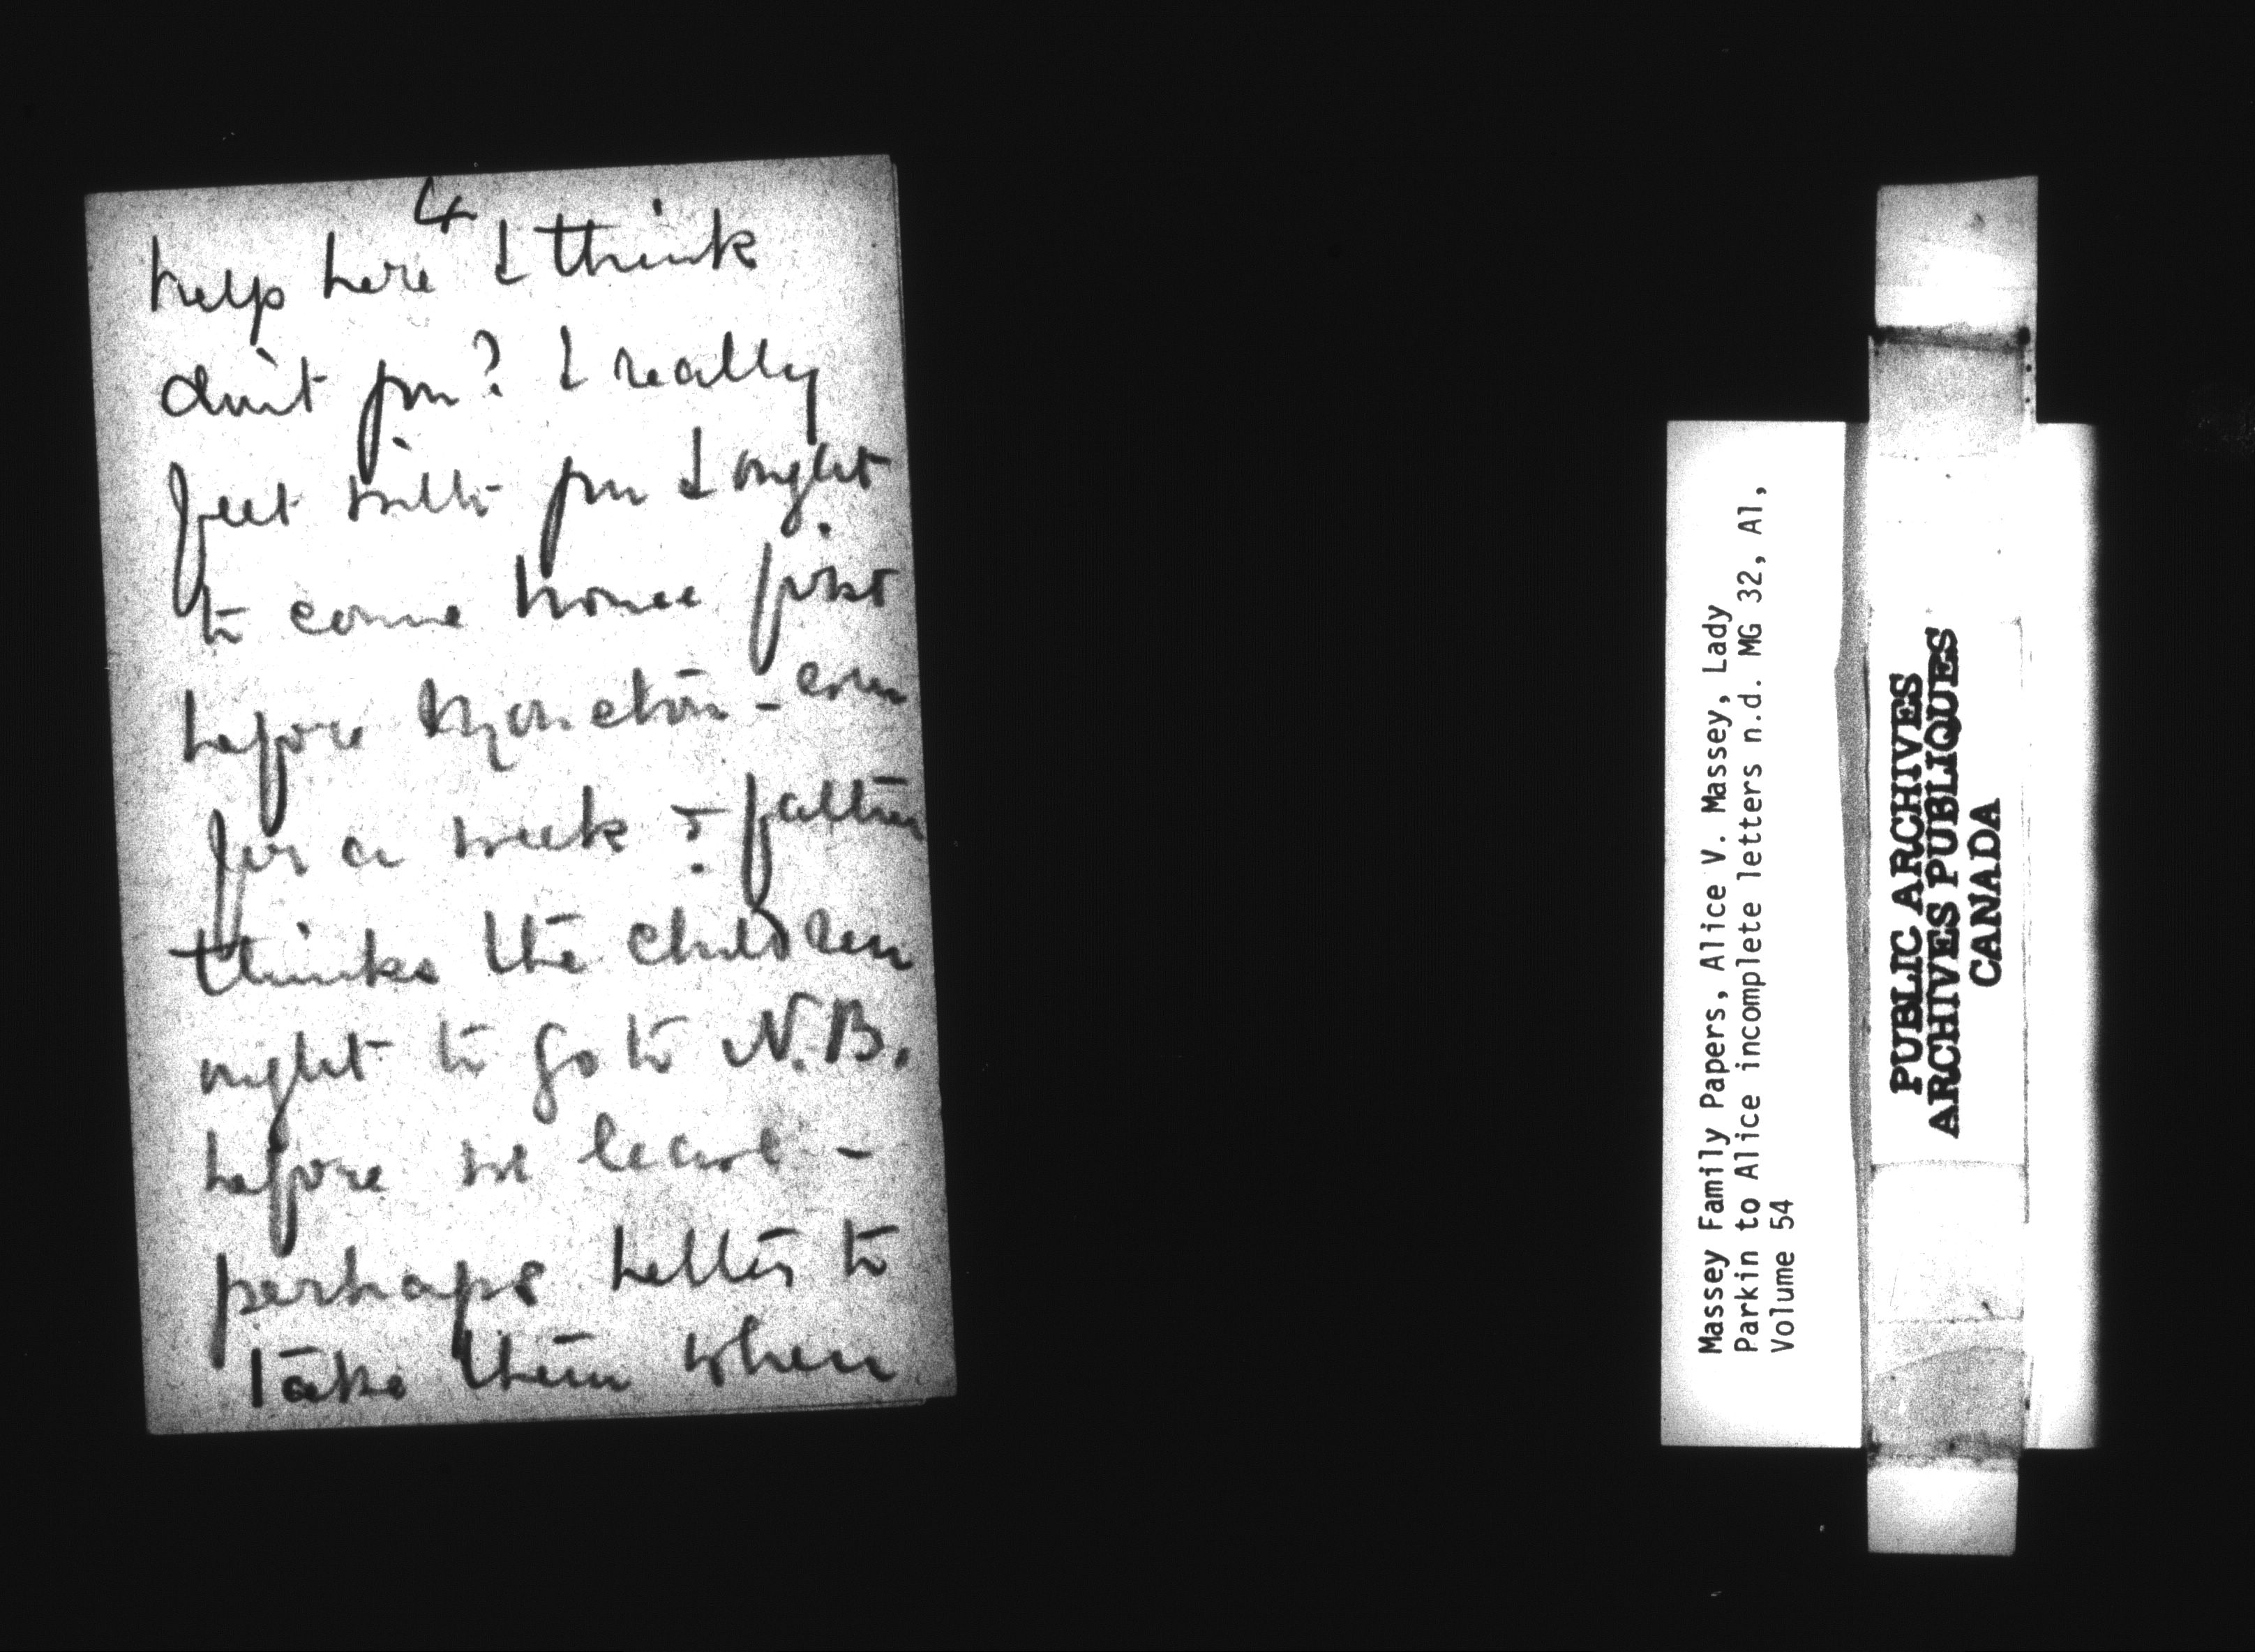 4
help here I think
don't you? I really
feel with you I ought
to come home first
before Moncton - even
for a week & father
thinks the children
ought to go to N.B.
before we leave -
perhaps better to
take them when
Massey Family Papers, Alice V. Massey, Lady
Parkin to Alice incomplete letters n.d. MG 32, A1,
Volume 54
PUBLIC ARCHIVES
ARCHIVES PUBLIQUES
CANADA